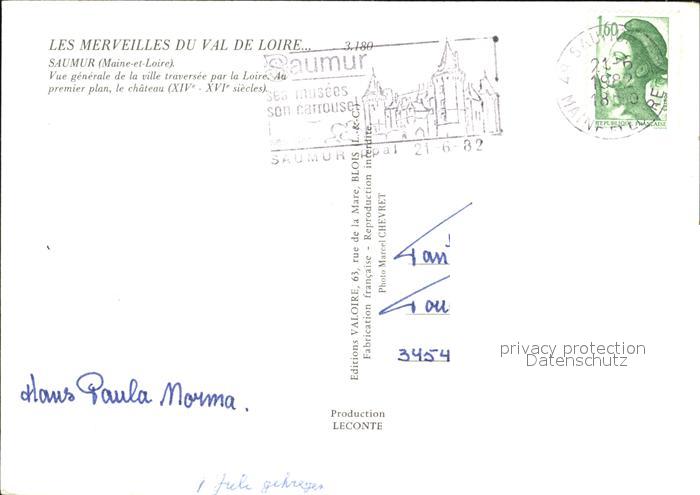 LES MERVEILLES DU VAL DE LOIRE... 3.180
SAUMUR (Maine-et-Loire).
Vue générale de la ville traversée par la Loire. Au
premier plan, le château (XIVe - XVIe siècles).
Saumur
ses musées
son carrousel
SAUMUR Ppal 21-6-82
1,60
REPUBLIQUE FRANÇAISE
49 SAUMUR
21-6
1982
MAINE ET LOIRE
Editions VALOIRE, 63, rue de la Mare, BLOIS (L.-&-C.)
Fabrication française - Reproduction interdite.
Photo Marcel CHEVRET
Fam
3454
privacy protection
Datenschutz
Hans Paula Norma.
Production
LECONTE
1 Juli gekregen